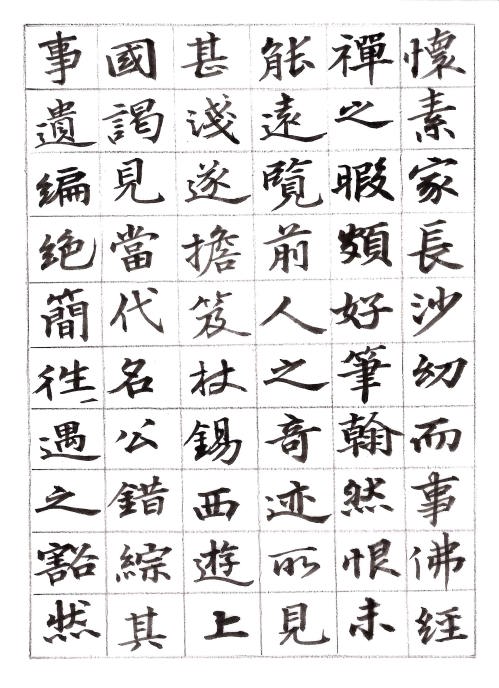 懷素家長沙幼而事佛經
禪之暇頗好筆翰然恨未
能遠覽前人之奇迹所見
甚淺遂擔笈杖錫西遊上
國謁見當代名公錯綜其
事遺編絶簡往々遇之豁然